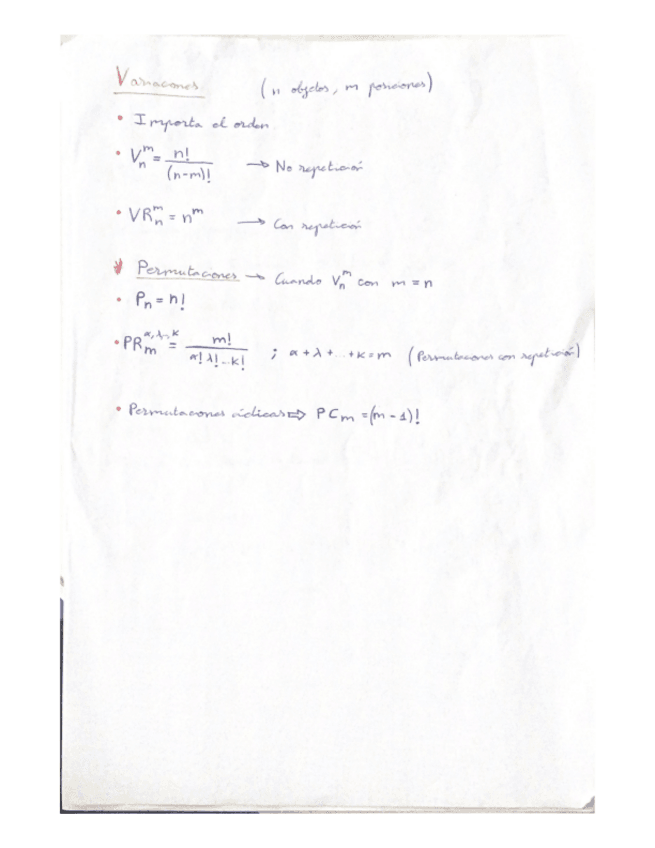 Variaciones (n objetos, m posiciones)
• Importa el orden
• V_n^m = n!/(n-m)! → No repetición
• VR_n^m = n^m → Con repetición
Permutaciones → Cuando V_n^m con m = n
• P_n = n!
• PR_m^{α,λ..,κ} = m!/(α! λ!...κ!) ; α + λ + ... + κ = m (Permutaciones con repetición)
• Permutaciones cíclicas ⇨ PC_m = (m - 1)!